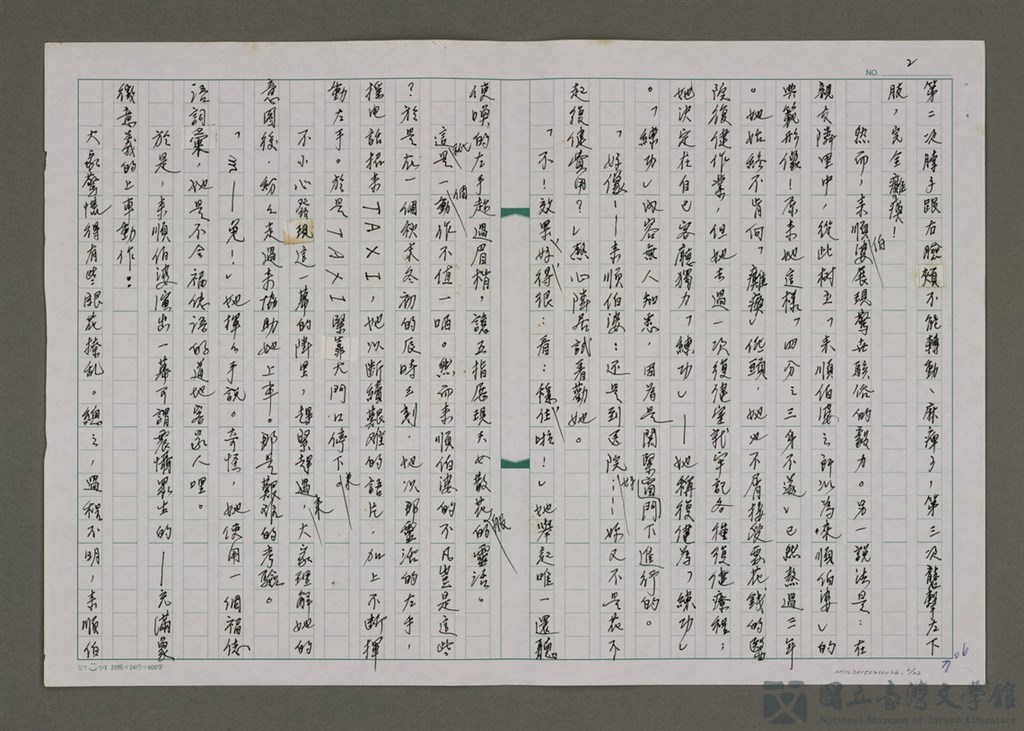 NO. 2
第二次脖子跟右臉頰不能轉動、麻痺了,第三次襲擊左下
肢,完全癱瘓!
然而,來順伯婆展現驚世駭俗的毅力。另一說法是:在
親友隣里中,從此樹立「來順伯婆之所以為來順伯婆」的
典範形像!原來她這樣「四分之三身不遂」已然熬過三年
。她始終不肯向「癱瘓」低頭,她也不屑接受要花錢的醫
院復健作業,但她去過一次復健室就牢記各種復健療程;
她決定在自己客廳獨力「練功」——她稱復健為「練功」
。「練功」內容無人知悉,因為是關緊窗門下進行的。
「好像!——來順伯婆:還是到送院……妳又不是花不
起復健費用?」熱心隣居試着勸她。
「不!效果好得很:看:穩住啦!」她舉起唯一還聽
使喚的左手超過眉梢,讓五指展現天女散花般的靈活。
這是一個動作不值一哂。然而來順伯婆的不凡豈是這些
?於是在一個秋末冬初的辰時三刻,她以那靈活的左手,
搖電話招來TAXI,她以斷續艱难的語片,加上不断揮
動左手。於是TAXI緊靠大門口停下來。
不小心發現這一幕的隣里,趕緊趕過來,大家理解她的
意圖後,紛紛走過來協助她上車。那是艱难的考驗。
「ㄇ——免!」她揮揮手說。奇怪,她使用一個福佬
語詞彙,她是不会福佬語的道地客家人哩。
於是,來順伯婆演出一幕可謂震懾眾生的——充滿象
徵意義的上車動作:
大家驚慌得有些眼花撩乱。總之,過程不明,來順伯
25格×24行=600字
國立臺灣文學館
National Museum of Taiwan Literature